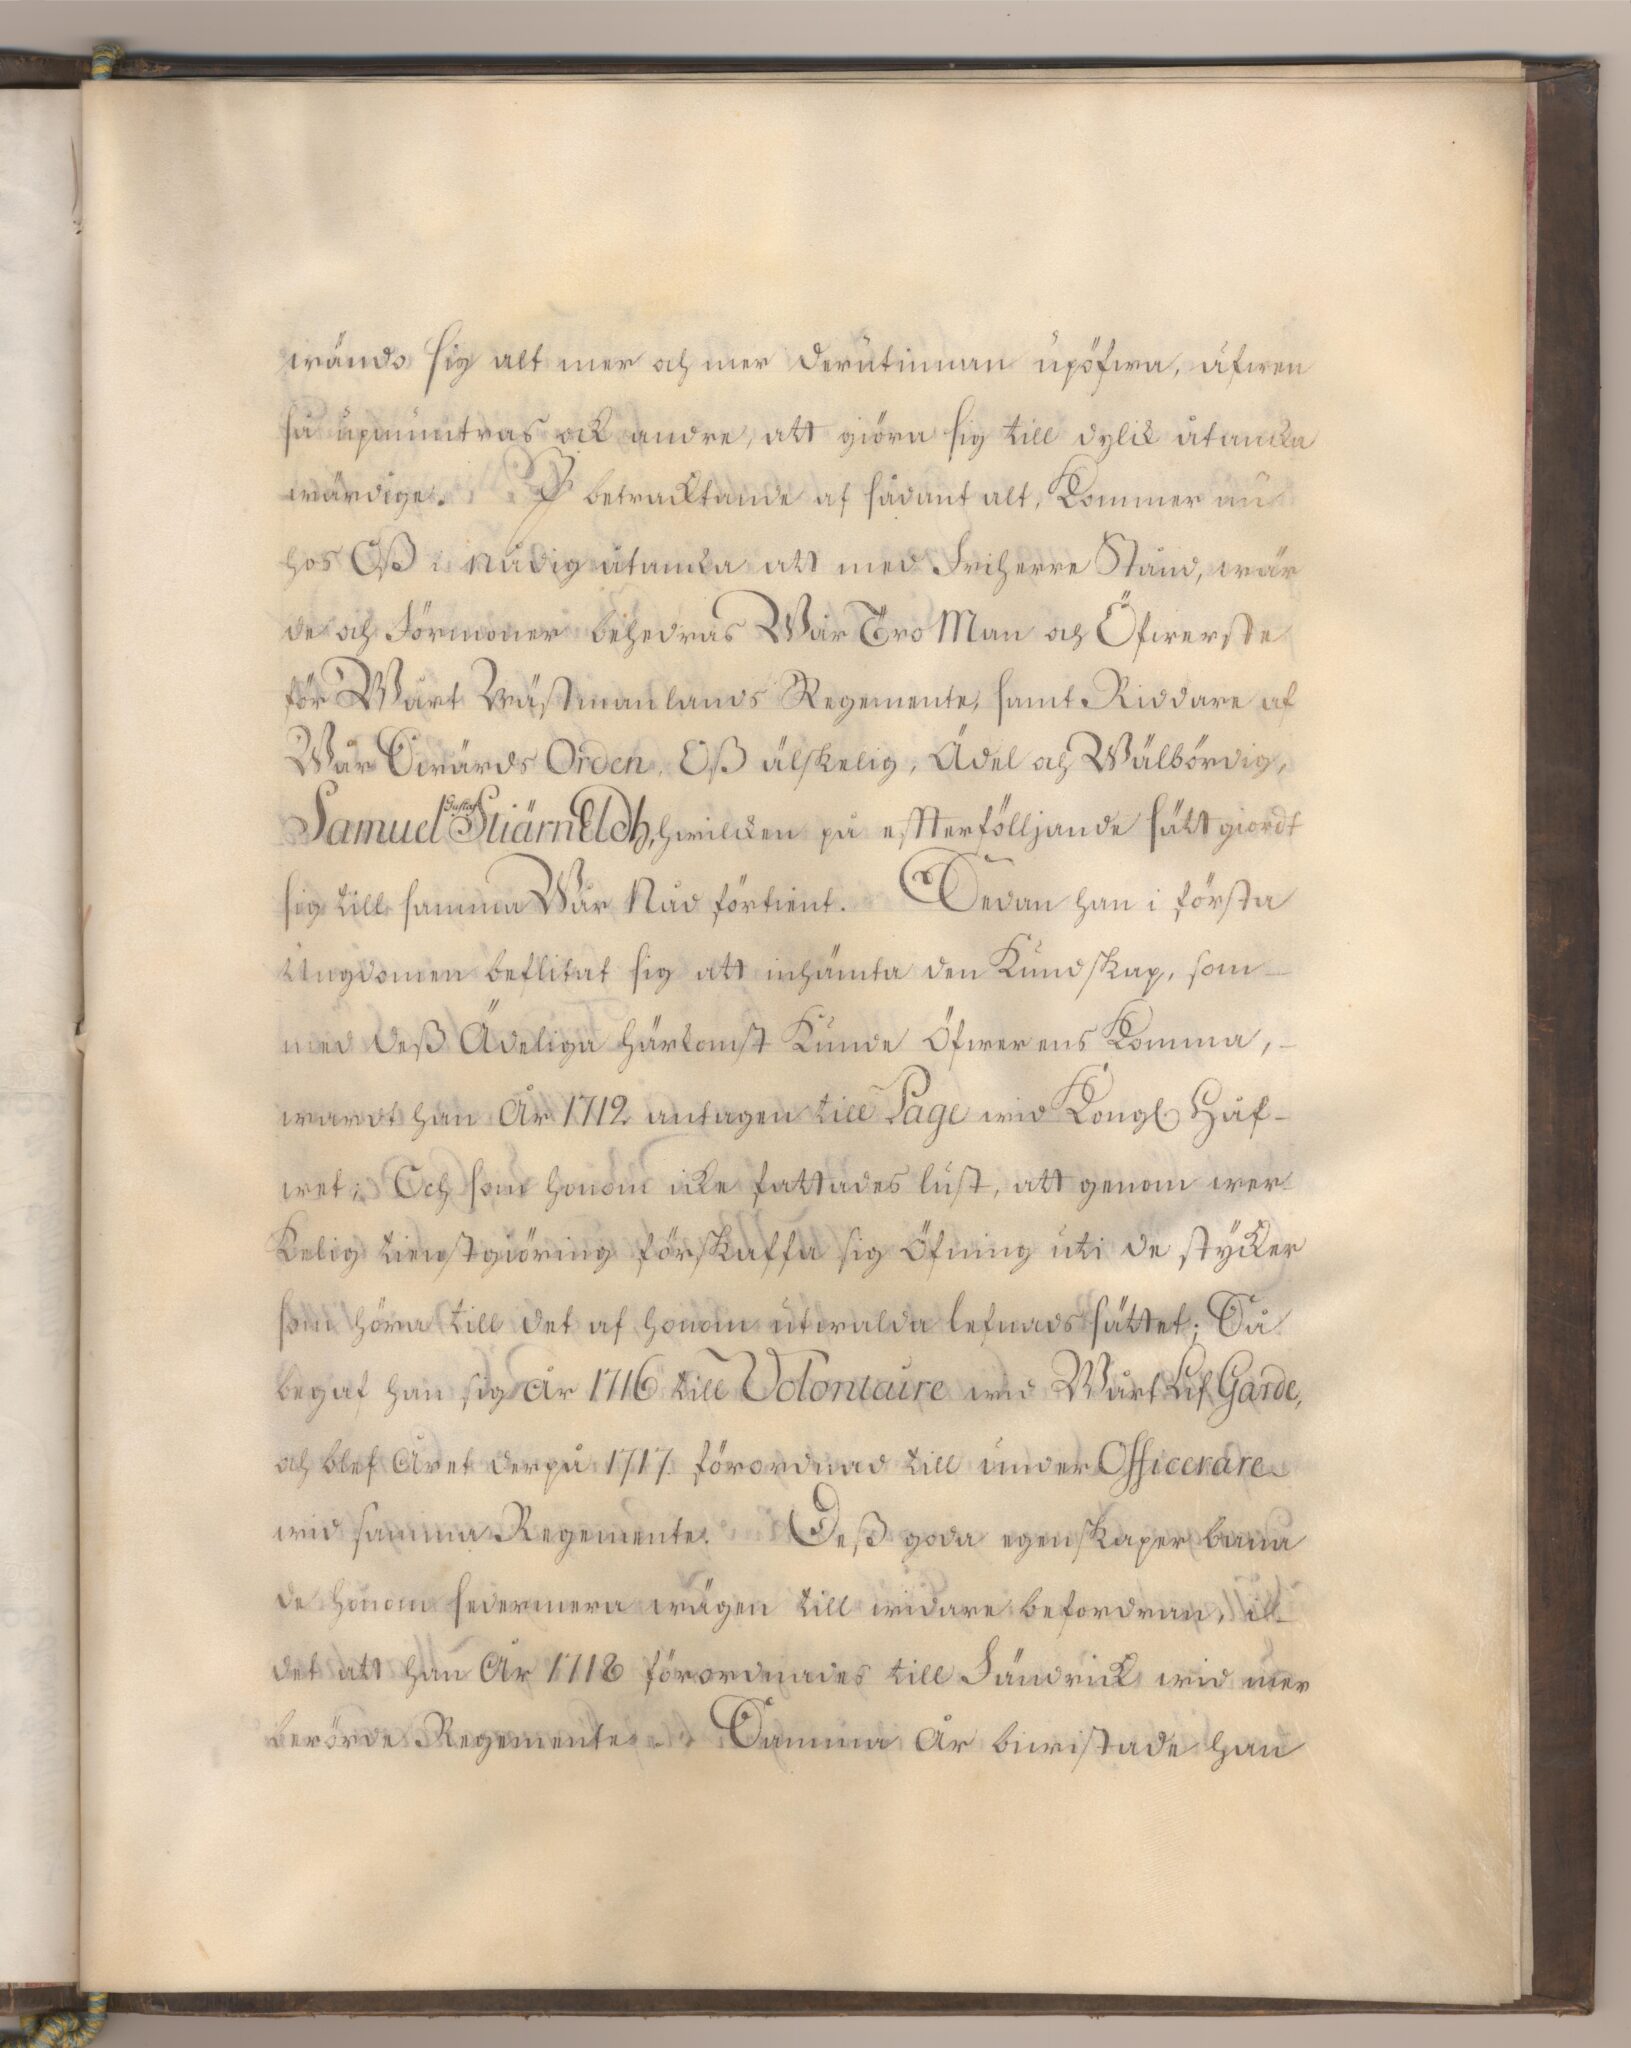 wände sig alt mer och mer derutinnan upöfwa, äfwen
så upmuntras ock andre, att giöra sig till dylik åtancka
wärdige. I betracktande af sådant alt, Kommer nu
hos Oß i nådig åtancka att med Friherre Stånd, wär
de och Förmoner behedras Wår Tro Man och Öfwerste
för Wårt Wästmanlands Regemente, samt Riddare af
Wår Swärds Orden, Oß älskelig, Ädel och Wälbördig,
Samuel Gustaf Stiärneldh, hwilcken på effterfölljande sätt giordt
sig till samma Wår Nåd förtient. Sedan han i första
Ungdomen beflitat sig att inhämta den Kundskap, som
med deß Ädeliga härkomst Kunde Öfwerens Komma,
wardt han År 1712 antagen till Page wid Kongl Håf-
wet; Och som honom icke fattades lust, att genom wer
kelig tienstgiöring förskaffa sig Öfning uti de stycker
som höra till det af honom utwalda lefnads sättet; Så
begaf han sig År 1716 till Volontaire wid Wårt Lif Garde,
och blef Året derpå 1717 förordnad till under Officerare
wid samma Regemente. Deß goda egenskaper bana
de honom sedermera wägen till widare befordran, i
det att han År 1718 förordnades till Fändrick wid mer
berörde Regemente. Samma År biwistade han